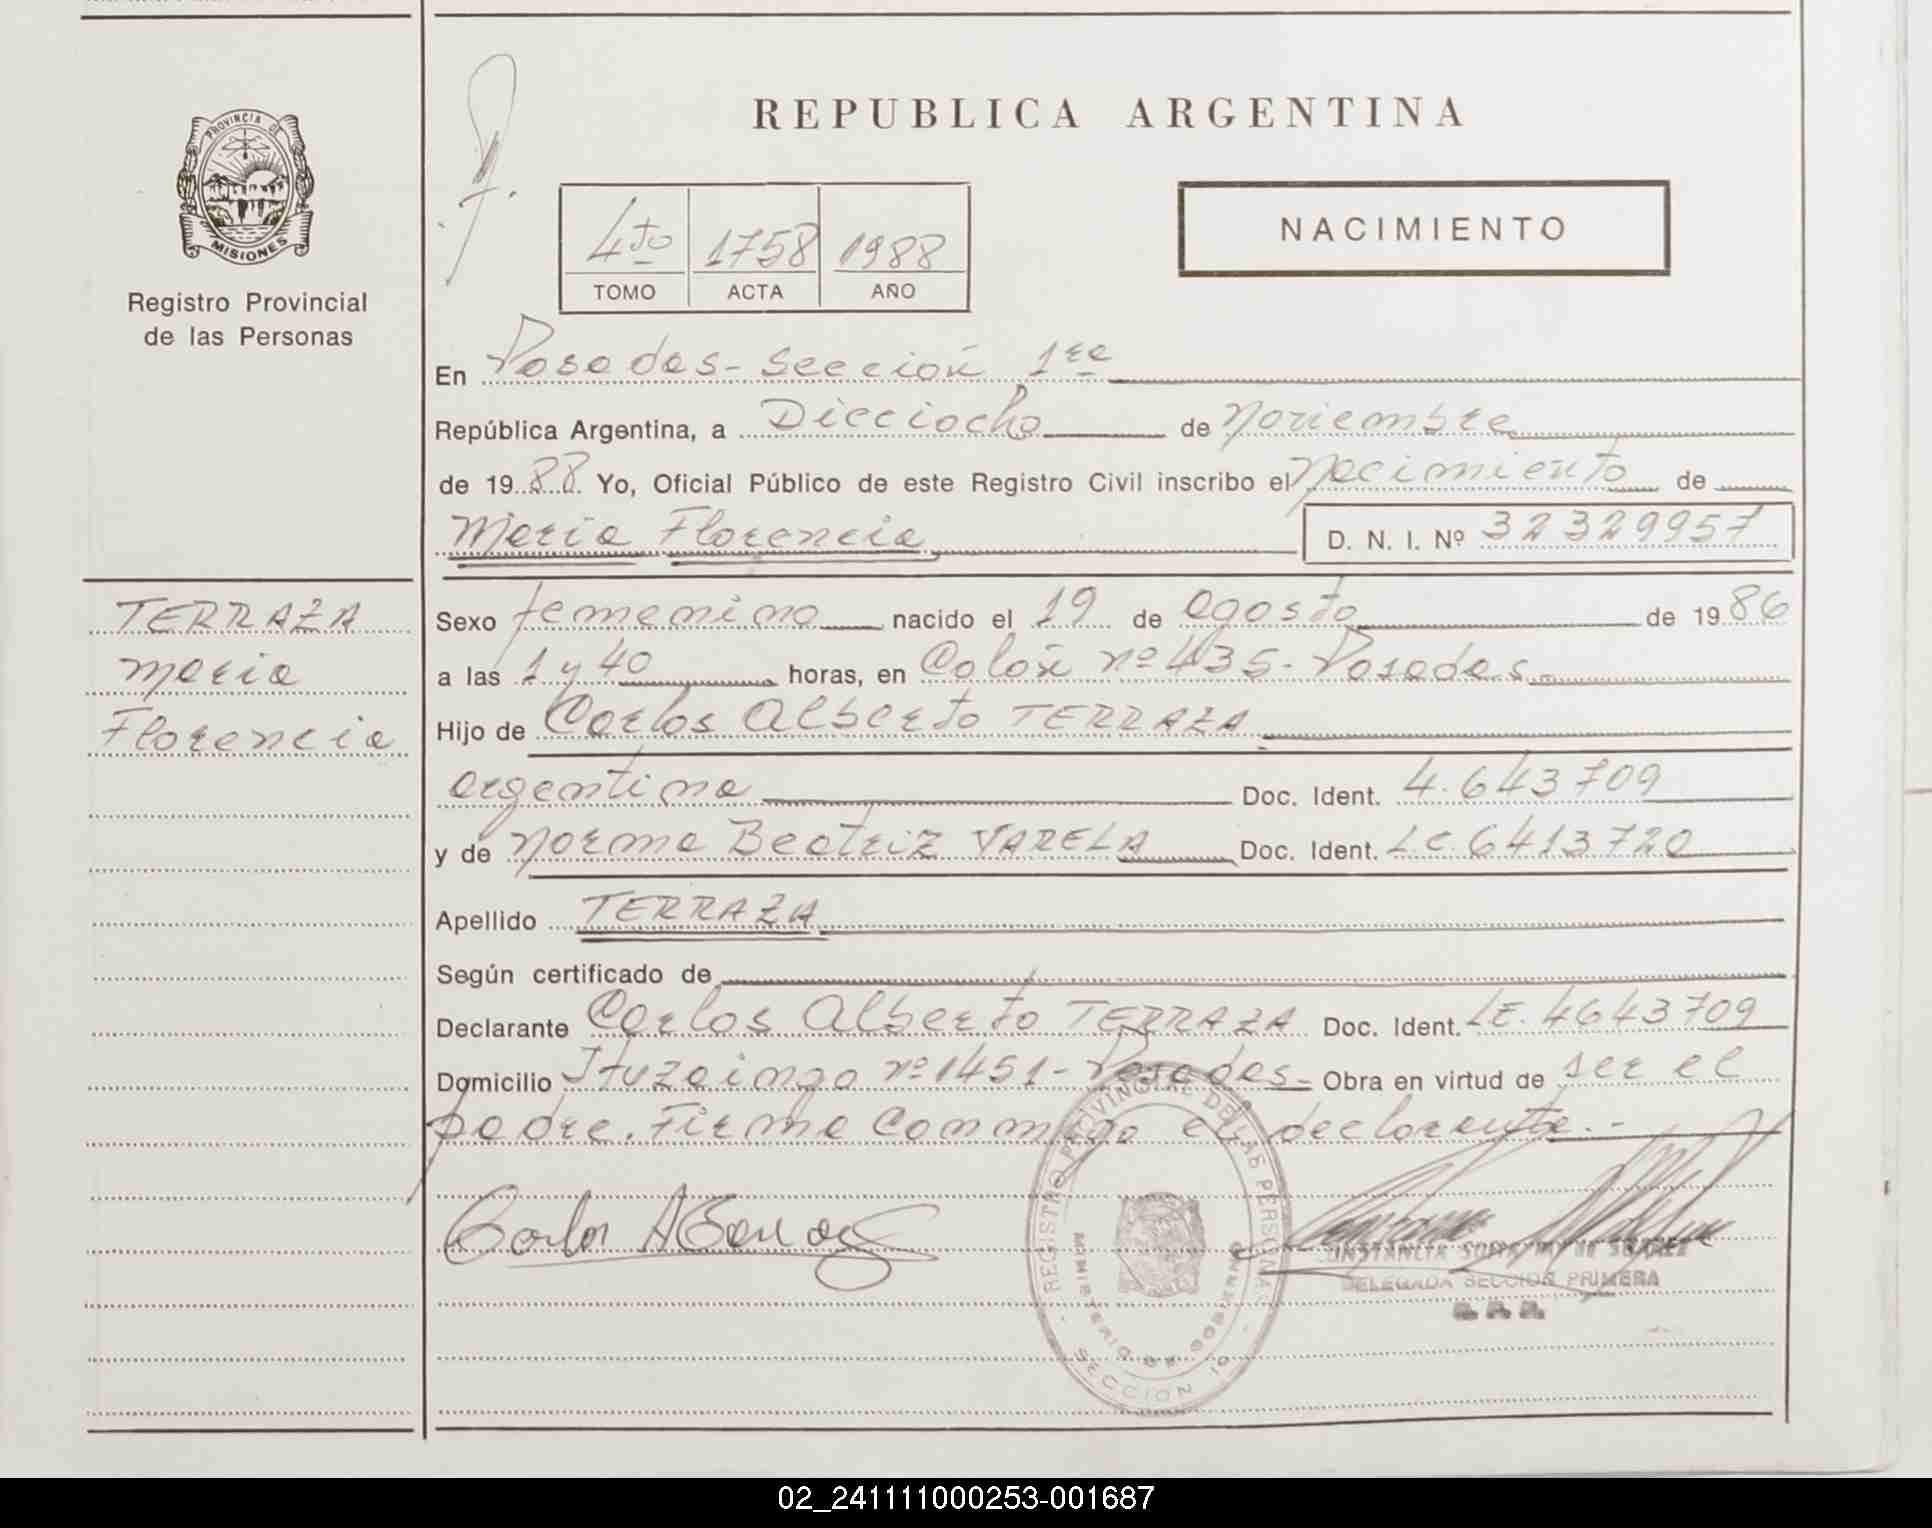 PROVINCIA DE
MISIONES
Registro Provincial
de las Personas
TERRAZA
Maria
Florencia
REPUBLICA ARGENTINA
4to 1758 1988
TOMO ACTA AÑO
NACIMIENTO
En Posadas - Sección 1ra
República Argentina, a Dieciocho de Noviembre
de 1988 Yo, Oficial Público de este Registro Civil inscribo el Nacimiento de
Maria Florencia D. N. I. Nº 32329957
Sexo femenino nacido el 19 de agosto de 1986
a las 1 y 40 horas, en Colón nº 435 - Posadas
Hijo de Carlos Alberto TERRAZA
argentina Doc. Ident. 4.643709
y de Norma Beatriz VARELA Doc. Ident. L.C. 6413720
Apellido TERRAZA
Según certificado de
Declarante Carlos Alberto TERRAZA Doc. Ident. L.E. 4643709
Domicilio Ituzaingo nº 1451 - Posadas - Obra en virtud de ser el
padre. Firma conmigo el declarante.-
REGISTRO PROVINCIAL DE LAS PERSONAS
MINISTERIO DE GOBIERNO
SECCION 1º
DELEGADA SECCION PRIMERA
02_241111000253-001687